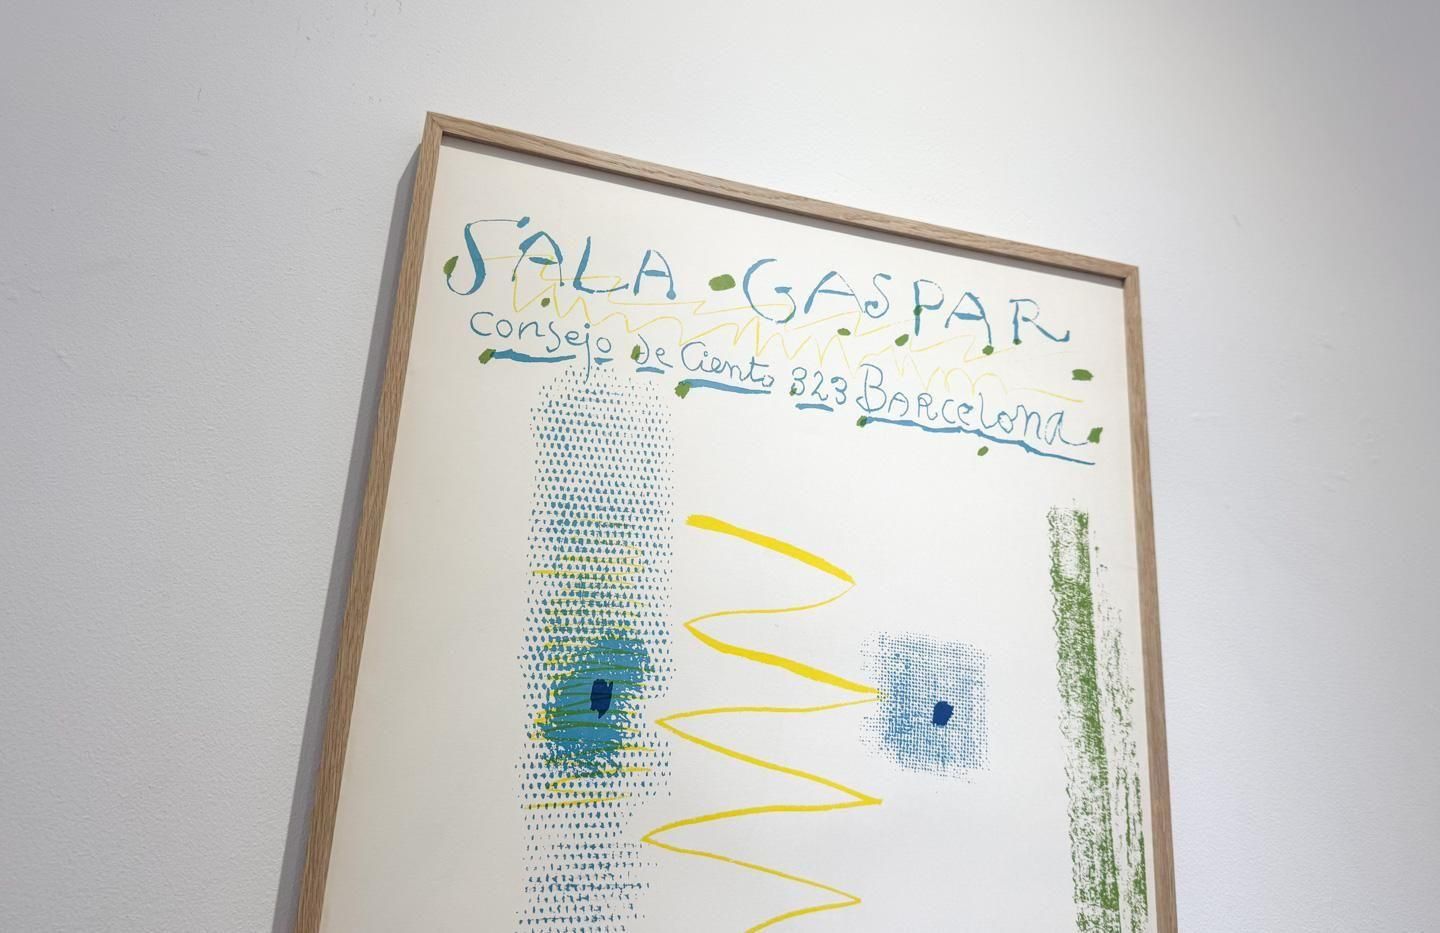 SALA GASPAR
consejo de Ciento 323 BARCelonA